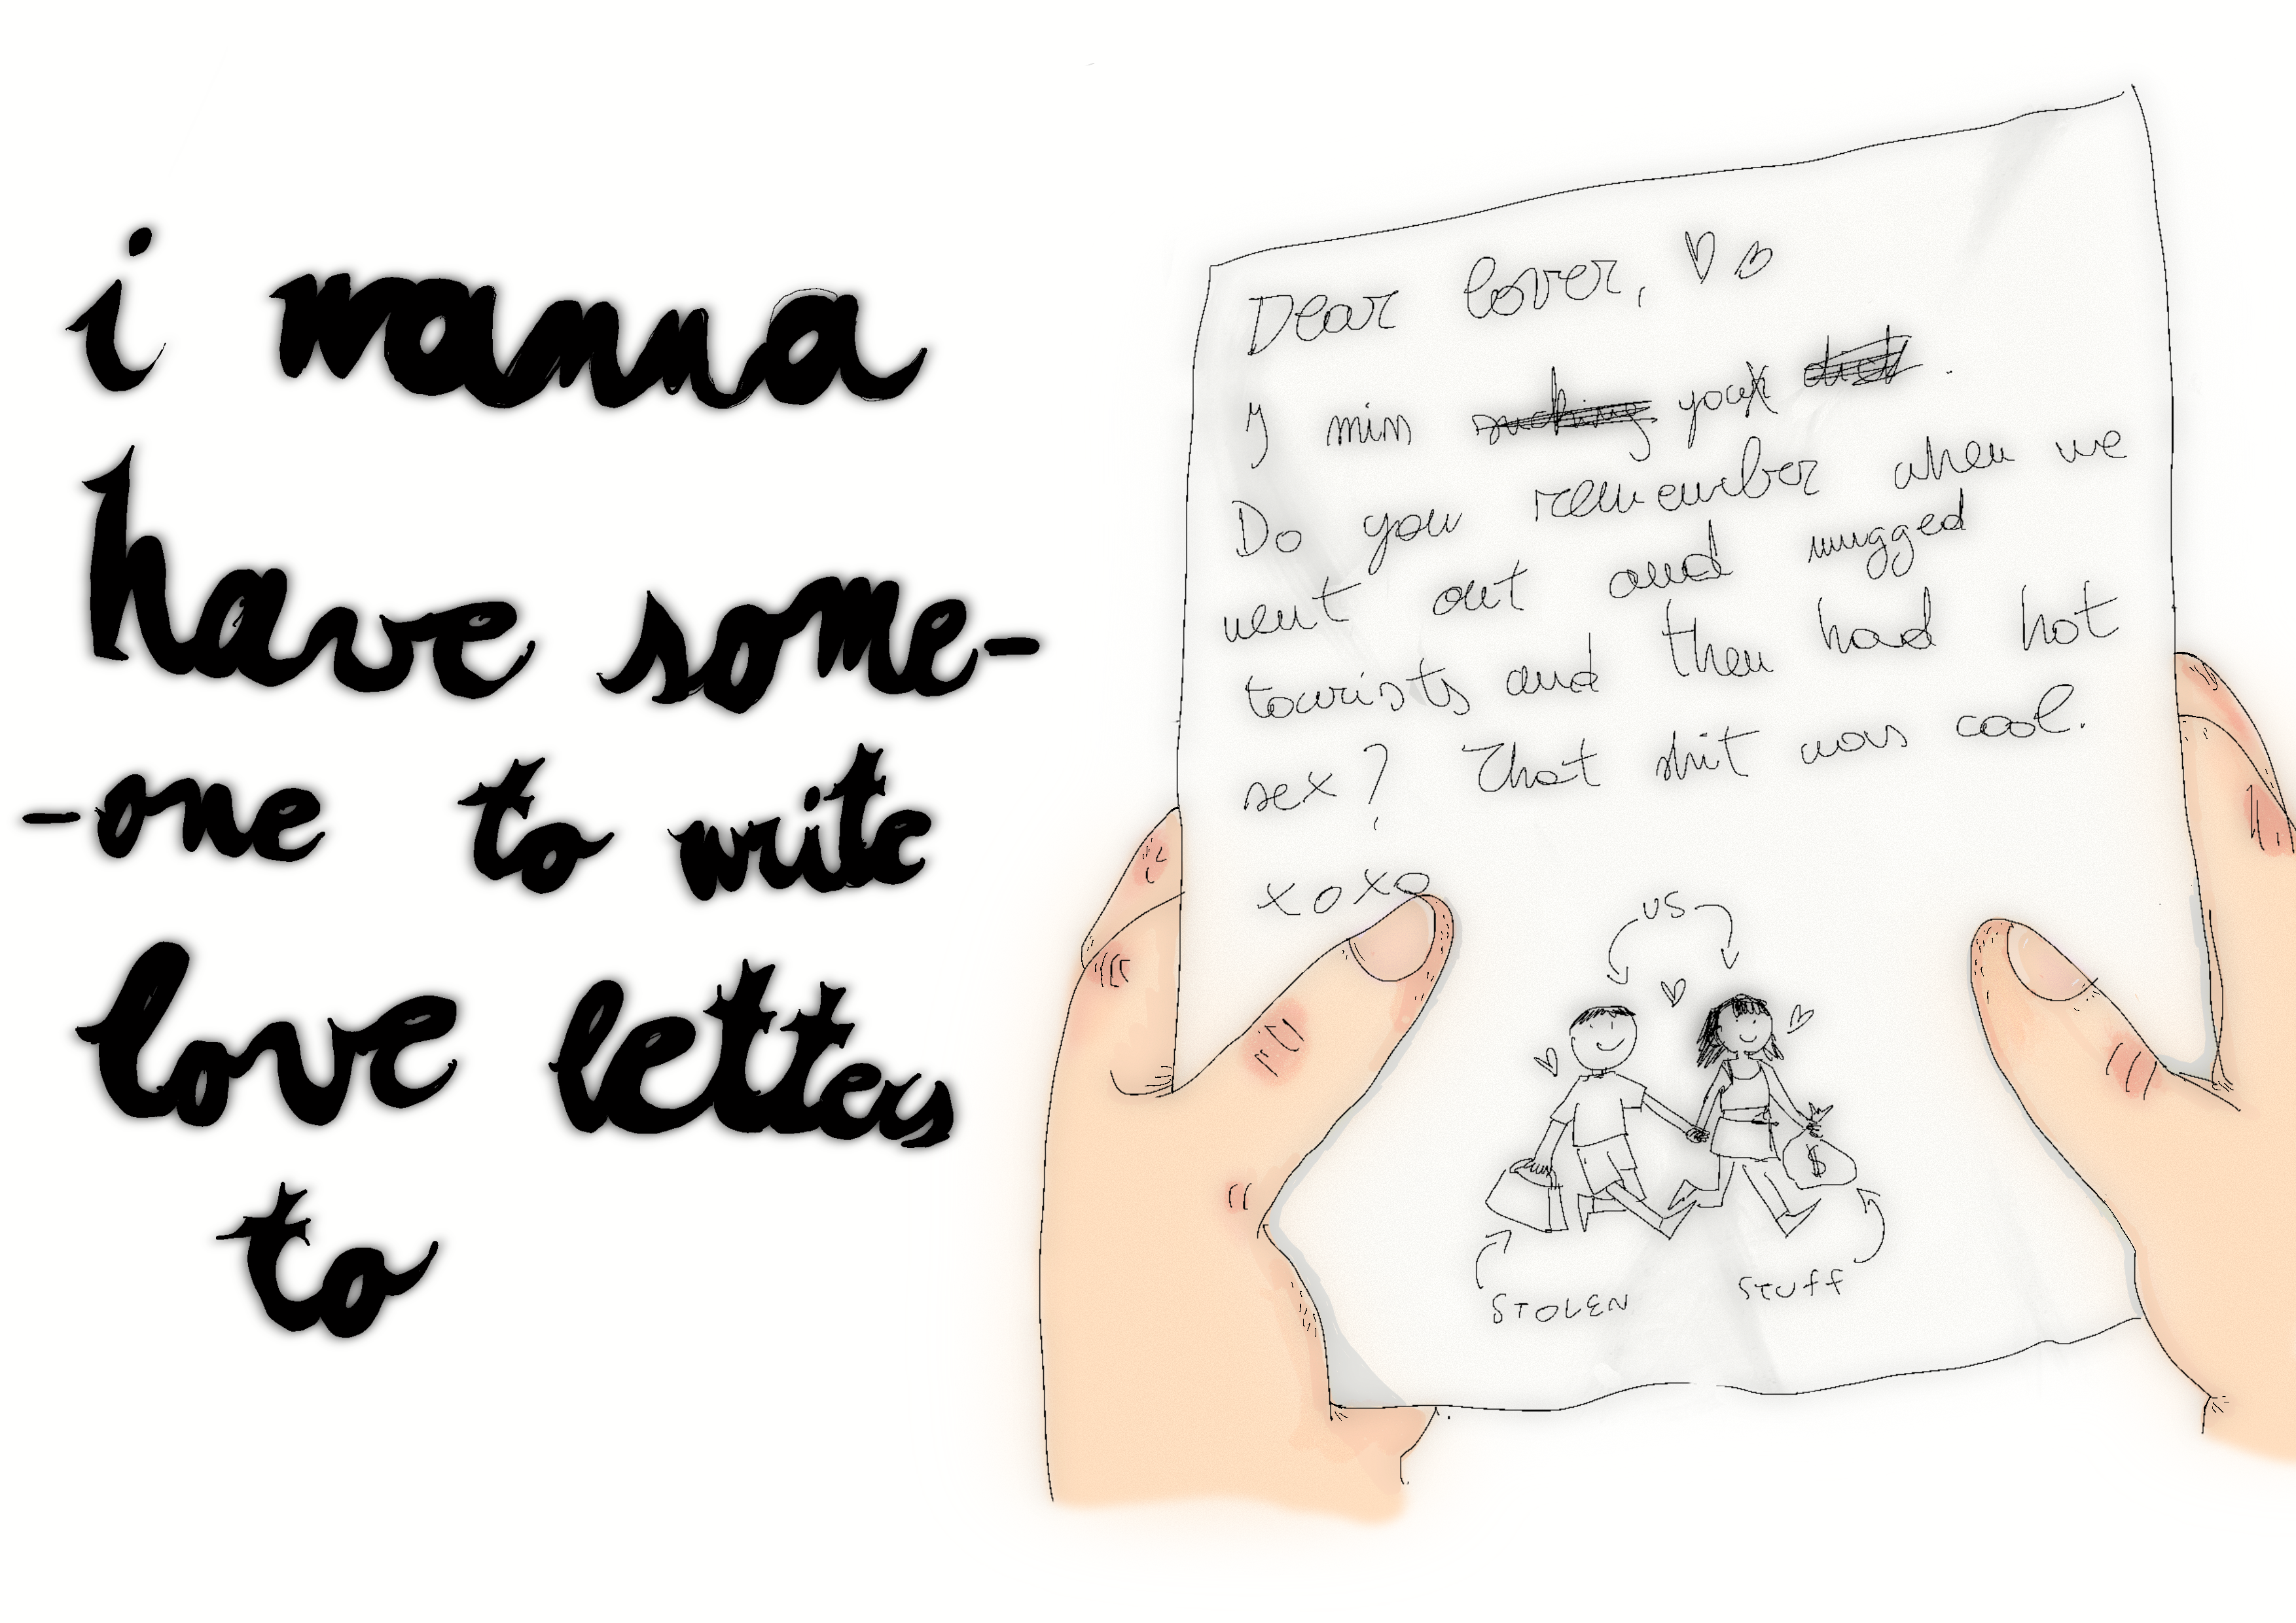 i wanna
have some-
-one to write
love letters
to
Dear lover,
I miss sucking your dick.
Do you remember when we
went out and mugged
tourists and then had hot
sex? That shit was cool.
xoxo
US
STOLEN
STUFF
$